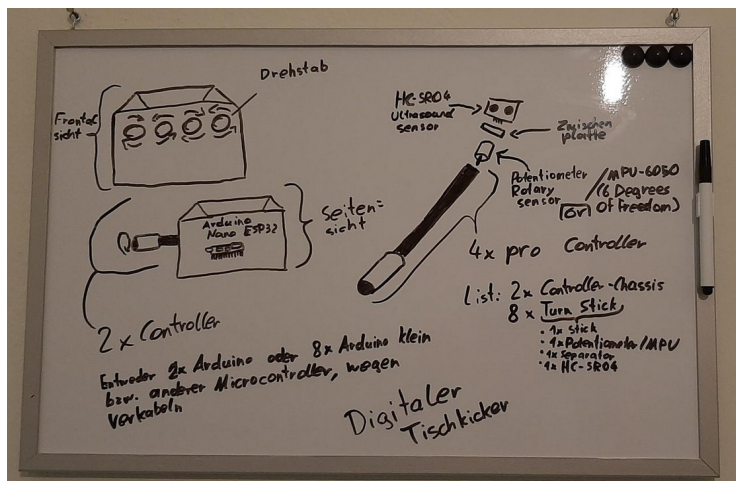 Frontal
sicht
Drehstab
Arduino
Nano ESP32
Seiten=
sicht
2x Controller
Entweder 2x Arduino oder 8x Arduino klein
bzw. anderer Microcontroller, wegen
Verkabeln
HC-SR04
Ultrasound
sensor
Zwischen
platte
Potentiometer
Rotary
sensor
or
/MPU-6050
(6 Degrees
Of Freedom)
4x pro Controller
List: 2x Controller-Chassis
8x Turn Stick
• 1x Stick
• 1x Potentiometer/MPU
• 1x Separator
• 1x HC-SR04
Digitaler
Tischkicker